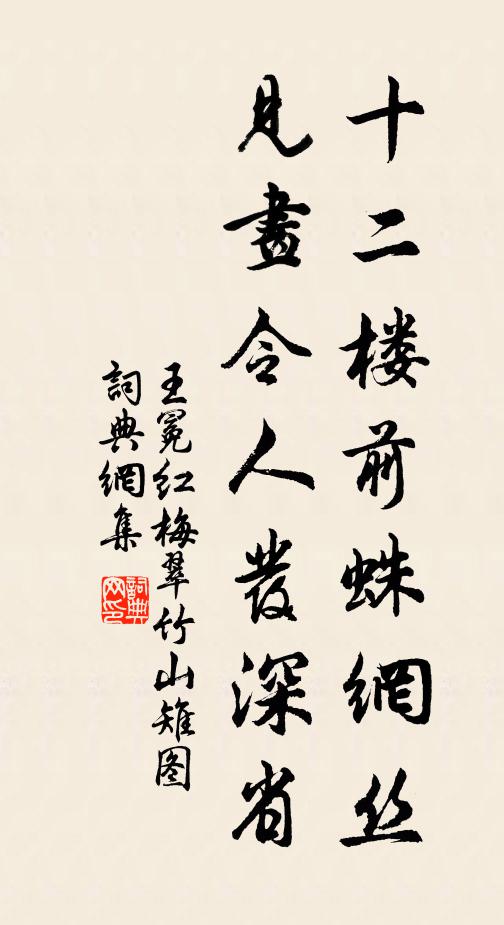 十二楼前蛛網丝
見畫令人發深省
王冕红梅翠竹山雉图
詞典網集
詞典网印